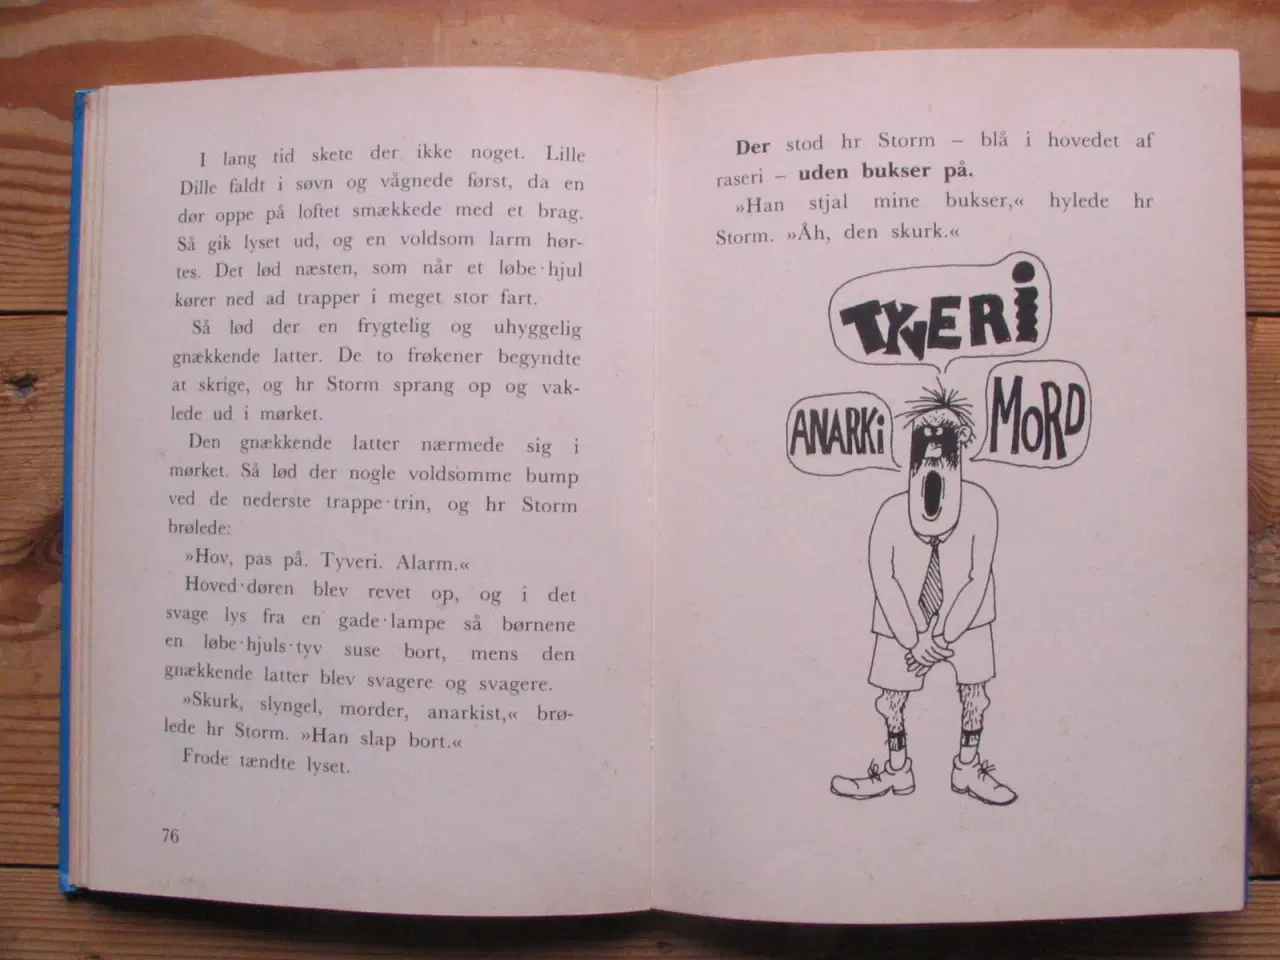 I lang tid skete der ikke noget. Lille
Dille faldt i søvn og vågnede først, da en
dør oppe på loftet smækkede med et brag.
Så gik lyset ud, og en voldsom larm hør-
tes. Det lød næsten, som når et løbe·hjul
kører ned ad trapper i meget stor fart.
Så lød der en frygtelig og uhyggelig
gnækkende latter. De to frøkener begyndte
at skrige, og hr Storm sprang op og vak-
lede ud i mørket.
Den gnækkende latter nærmede sig i
mørket. Så lød der nogle voldsomme bump
ved de nederste trappe·trin, og hr Storm
brølede:
»Hov, pas på. Tyveri. Alarm.«
Hoved·døren blev revet op, og i det
svage lys fra en gade·lampe så børnene
en løbe·hjuls·tyv suse bort, mens den
gnækkende latter blev svagere og svagere.
»Skurk, slyngel, morder, anarkist,« brø-
lede hr Storm. »Han slap bort.«
Frode tændte lyset.
76
Der stod hr Storm – blå i hovedet af
raseri – uden bukser på.
»Han stjal mine bukser,« hylede hr
Storm. »Åh, den skurk.«
TYVERi
ANARKi
MORD